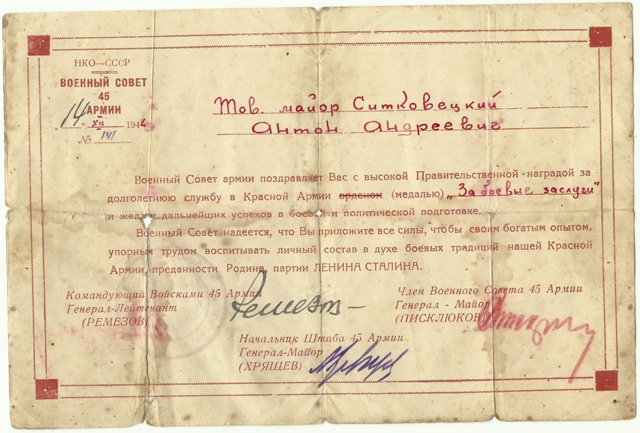 НКО—СССР
ВОЕННЫЙ СОВЕТ
45
АРМИИ
14 XII 1944
№ 141
Тов. майор Ситковецкий
Антон Андреевич
Военный Совет армии поздравляет Вас с высокой Правительственной наградой за
долголетнюю службу в Красной Армии орденом (медалью) „За боевые заслуги"
и желает дальнейших успехов в боевой и политической подготовке.
Военный Совет надеется, что Вы приложите все силы, чтобы своим богатым опытом,
упорным трудом воспитывать личный состав в духе боевых традиций нашей Красной
Армии, преданности Родине, партии ЛЕНИНА СТАЛИНА.
Командующий Войсками 45 Армии
Генерал-Лейтенант
(РЕМЕЗОВ)
Ремезов
Член Военного Совета 45 Армии
Генерал - Майор
(ПИСКЛЮКОВ)
Начальник Штаба 45 Армии
Генерал-Майор
(ХРЯЩЕВ)